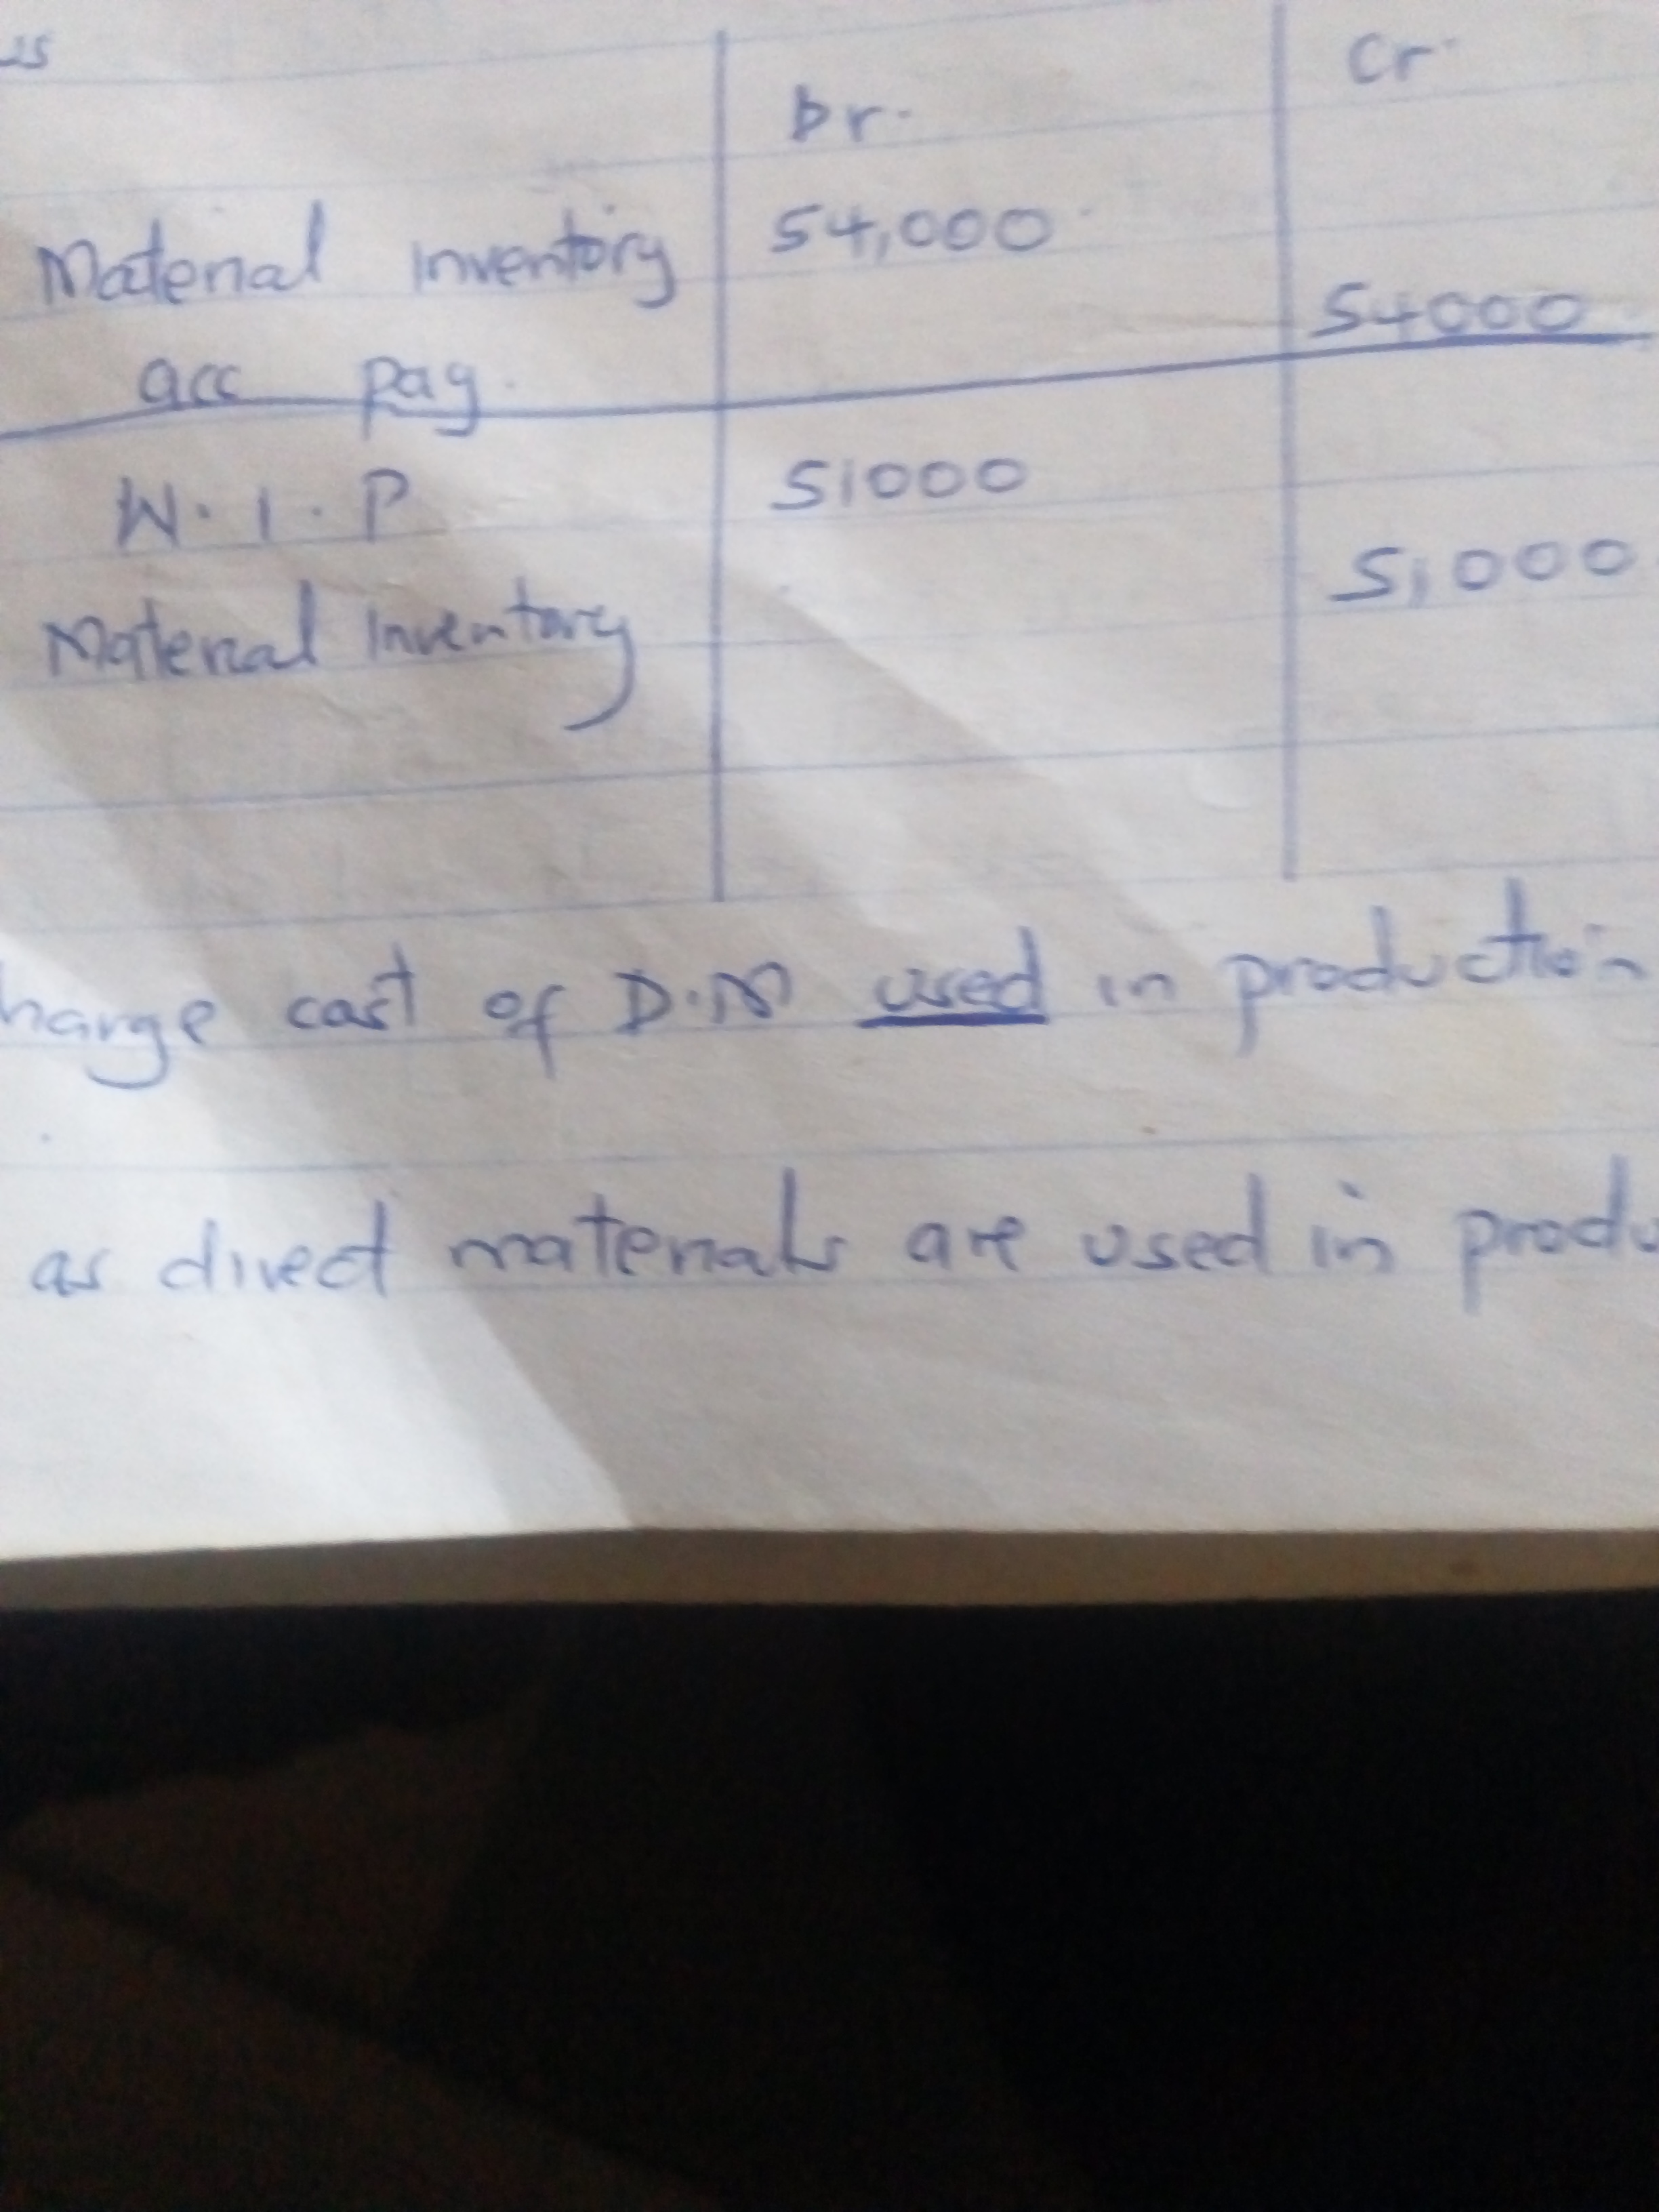 Dr. Cr.
Material Inventory 54,000
acc pay. 54000
W.I.P 51000
Material Inventory 51,000
harge cost of D.M used in production
as direct materials are used in produ